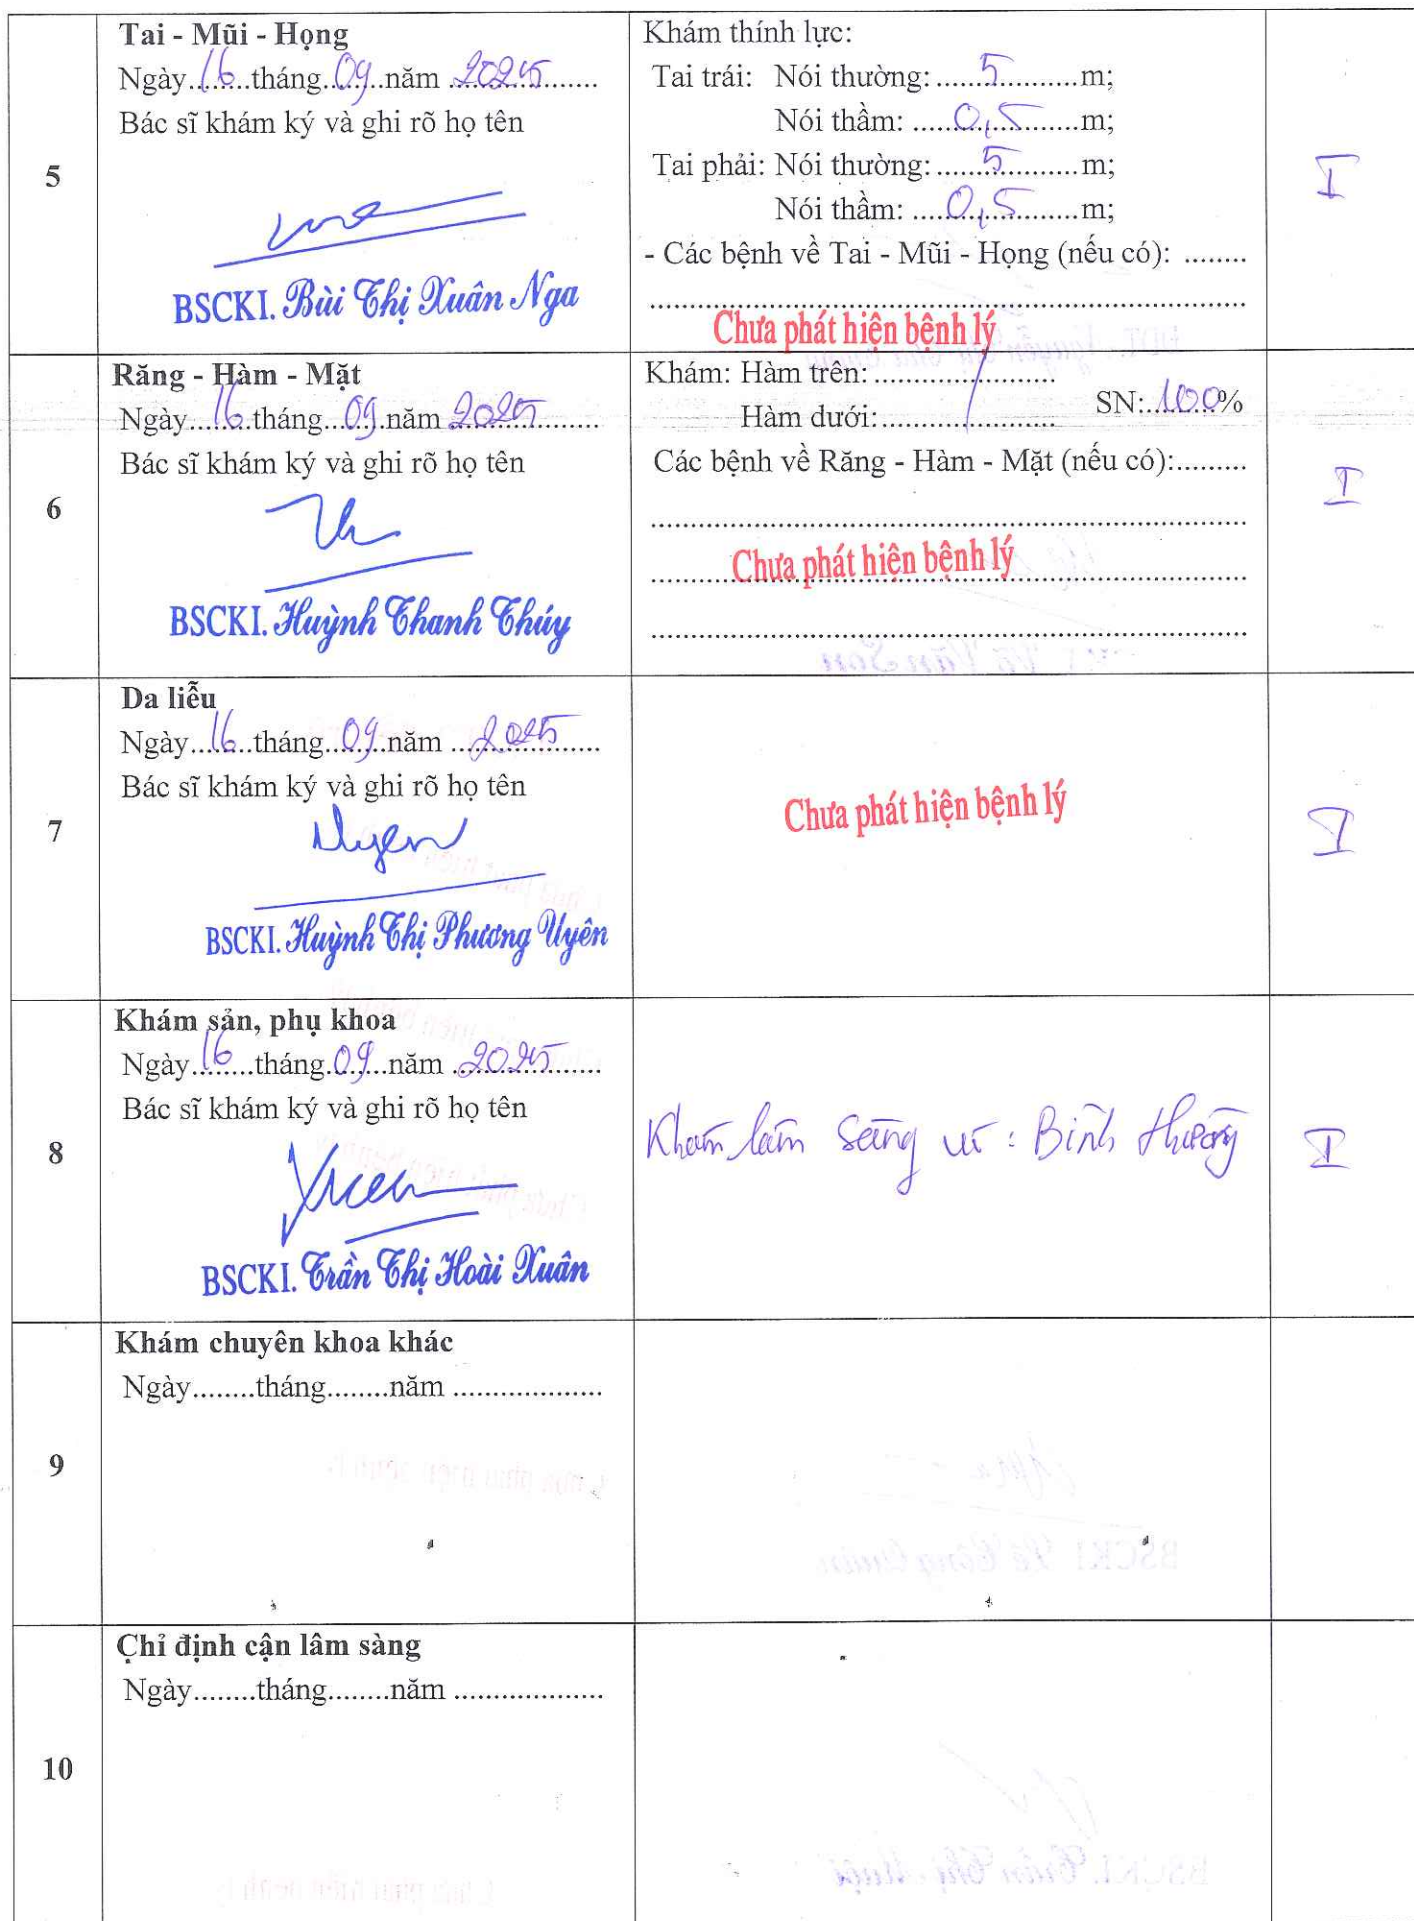 Tai - Mũi - Họng
Ngày..16..tháng..09..năm ..2025......
Bác sĩ khám ký và ghi rõ họ tên
5
BSCKI. Bùi Thị Xuân Nga
Khám thính lực:
Tai trái: Nói thường: ......5...........m;
Nói thầm: .....0,5........m;
Tai phải: Nói thường: ......5...........m;
Nói thầm: .....0,5........m;
- Các bệnh về Tai - Mũi - Họng (nếu có): ........
Chưa phát hiện bệnh lý
I
Răng - Hàm - Mặt
Ngày...16..tháng..09..năm 2025........
Bác sĩ khám ký và ghi rõ họ tên
6
BSCKI. Huỳnh Thanh Thúy
Khám: Hàm trên: ........................
Hàm dưới: ........................
SN:..100..%
Các bệnh về Răng - Hàm - Mặt (nếu có):.........
Chưa phát hiện bệnh lý
I
Da liễu
Ngày...16..tháng..09..năm ...2025......
Bác sĩ khám ký và ghi rõ họ tên
7
Uyen
BSCKI. Huỳnh Thị Phương Uyên
Chưa phát hiện bệnh lý
I
Khám sản, phụ khoa
Ngày..16...tháng.09..năm ..2025......
Bác sĩ khám ký và ghi rõ họ tên
8
BSCKI. Trần Thị Hoài Xuân
Khám lâm sàng vú : Bình thường
I
Khám chuyên khoa khác
Ngày........tháng........năm ...................
9
Chỉ định cận lâm sàng
Ngày........tháng........năm ...................
10